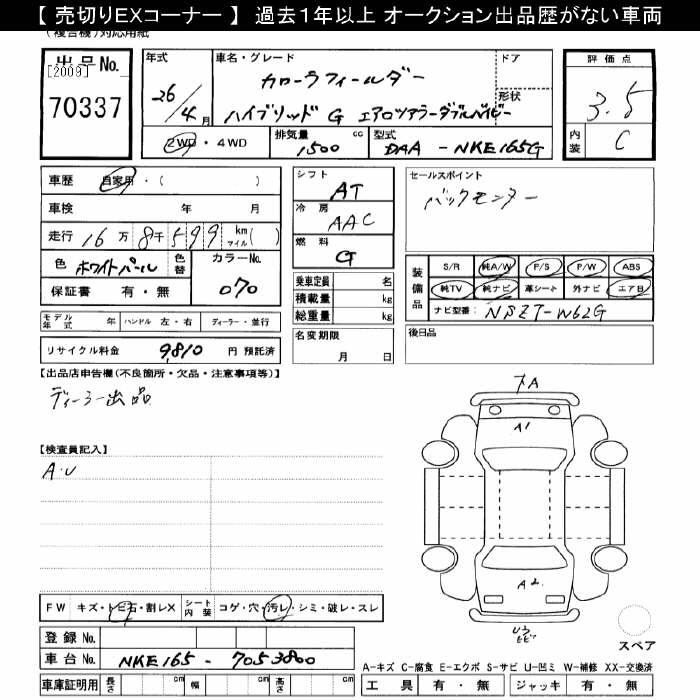 【 売切りEXコーナー 】 過去1年以上 オークション出品歴がない車両
(複合機)対応用紙
出品No.
[2009]
70337
年式
26/4月
車名・グレード
カローラフィールダー
ハイブリッド G エアロツアラーダブルバイビー
ドア
形状
2WD・4WD
排気量 1500 cc
型式 DAA - NKE165G
評価点
3.5
内装 C
車歴 自家用・( )
車検 年 月
走行 16万8千599 km マイル( )
色 ホワイトパール
色替
カラーNo. 070
保証書 有・無
モデル年式 年 ハンドル 左・右 ディーラー・並行
リサイクル料金 9,810 円 預託済
シフト AT
冷房 AAC
燃料 G
乗車定員 名
積載量 kg
総重量 kg
名変期限 月 日
セールスポイント
バックモニター
装備品
S/R 純A/W P/S P/W ABS
純TV 純ナビ 革シート 外ナビ エアB
ナビ型番: NSZT-W62G
後日品
【出品店申告欄(不良箇所・欠品・注意事項等)】
ディーラー出品
【検査員記入】
A・U
7A
A1
A2
U3
FW キズ・トビ石・割レX シート内装 コゲ・穴・汚レ・シミ・破レ・スレ
登録 No.
車台 No. NKE165 - 7053800
車庫証明用 長さ cm 幅 cm 高さ cm
スペア
A-キズ C-腐食 E-エクボ S-サビ U-凹ミ W-補修 XX-交換済
工具 有・無 ジャッキ 有・無